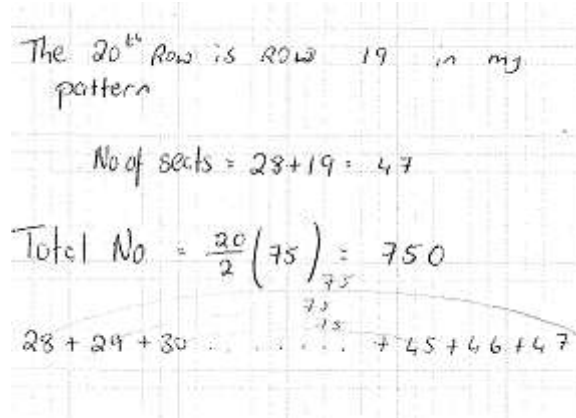 The 20th Row is ROW 19 in my
pattern
No of seats = 28+19 = 47
Total No = 20/2 (75) = 750
75
75
75
28 + 29 + 30 . . . . . . . . + 45 + 46 + 47